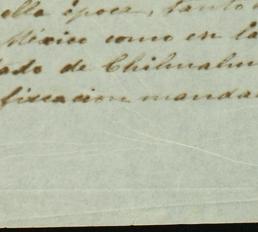 ella época, tanto
México como en la
tado de Chihuahu
ficacion manda